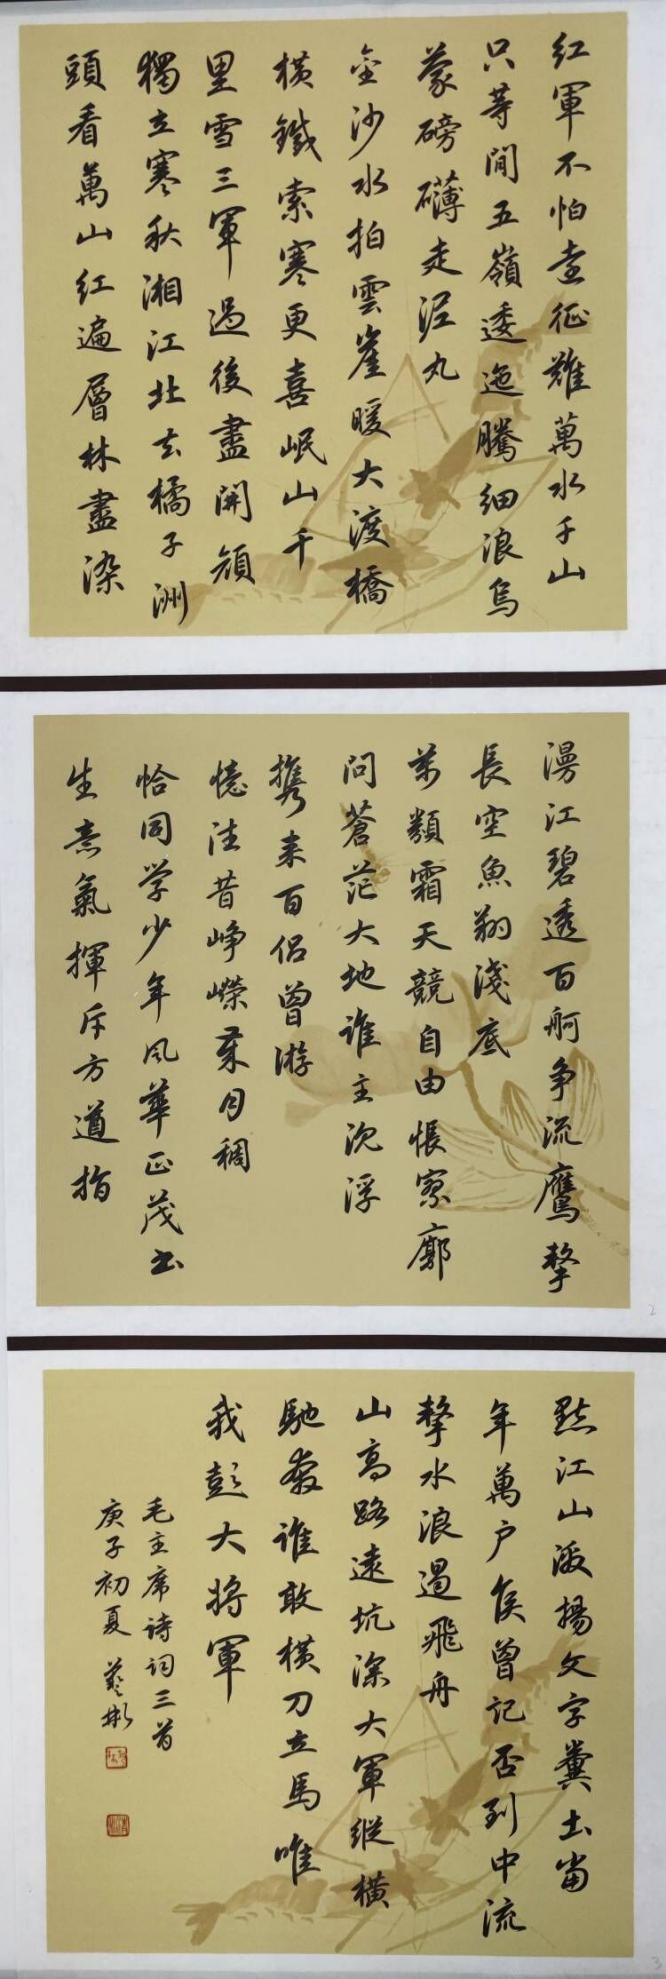 红軍不怕遠征難萬水千山
只等閒五嶺逶迤騰細浪烏
蒙磅礴走泥丸
金沙水拍雲崖暖大渡橋
橫鐵索寒更喜岷山千
里雪三軍過後盡開顏
獨立寒秋湘江北去橘子洲
頭看萬山红遍層林盡染
漫江碧透百舸争流鷹擊
長空魚翔淺底
萬類霜天競自由悵寥廓
問蒼茫大地誰主沉浮
携来百侣曾游
憶往昔崢嶸歲月稠
恰同学少年風華正茂书
生意氣揮斥方遒指
點江山激揚文字糞土當
年萬户侯曾記否到中流
擊水浪遏飛舟
山高路遠坑深大軍縱橫
馳奔誰敢橫刀立馬唯
我彭大将軍
毛主席詩詞三首
庚子初夏
2
3